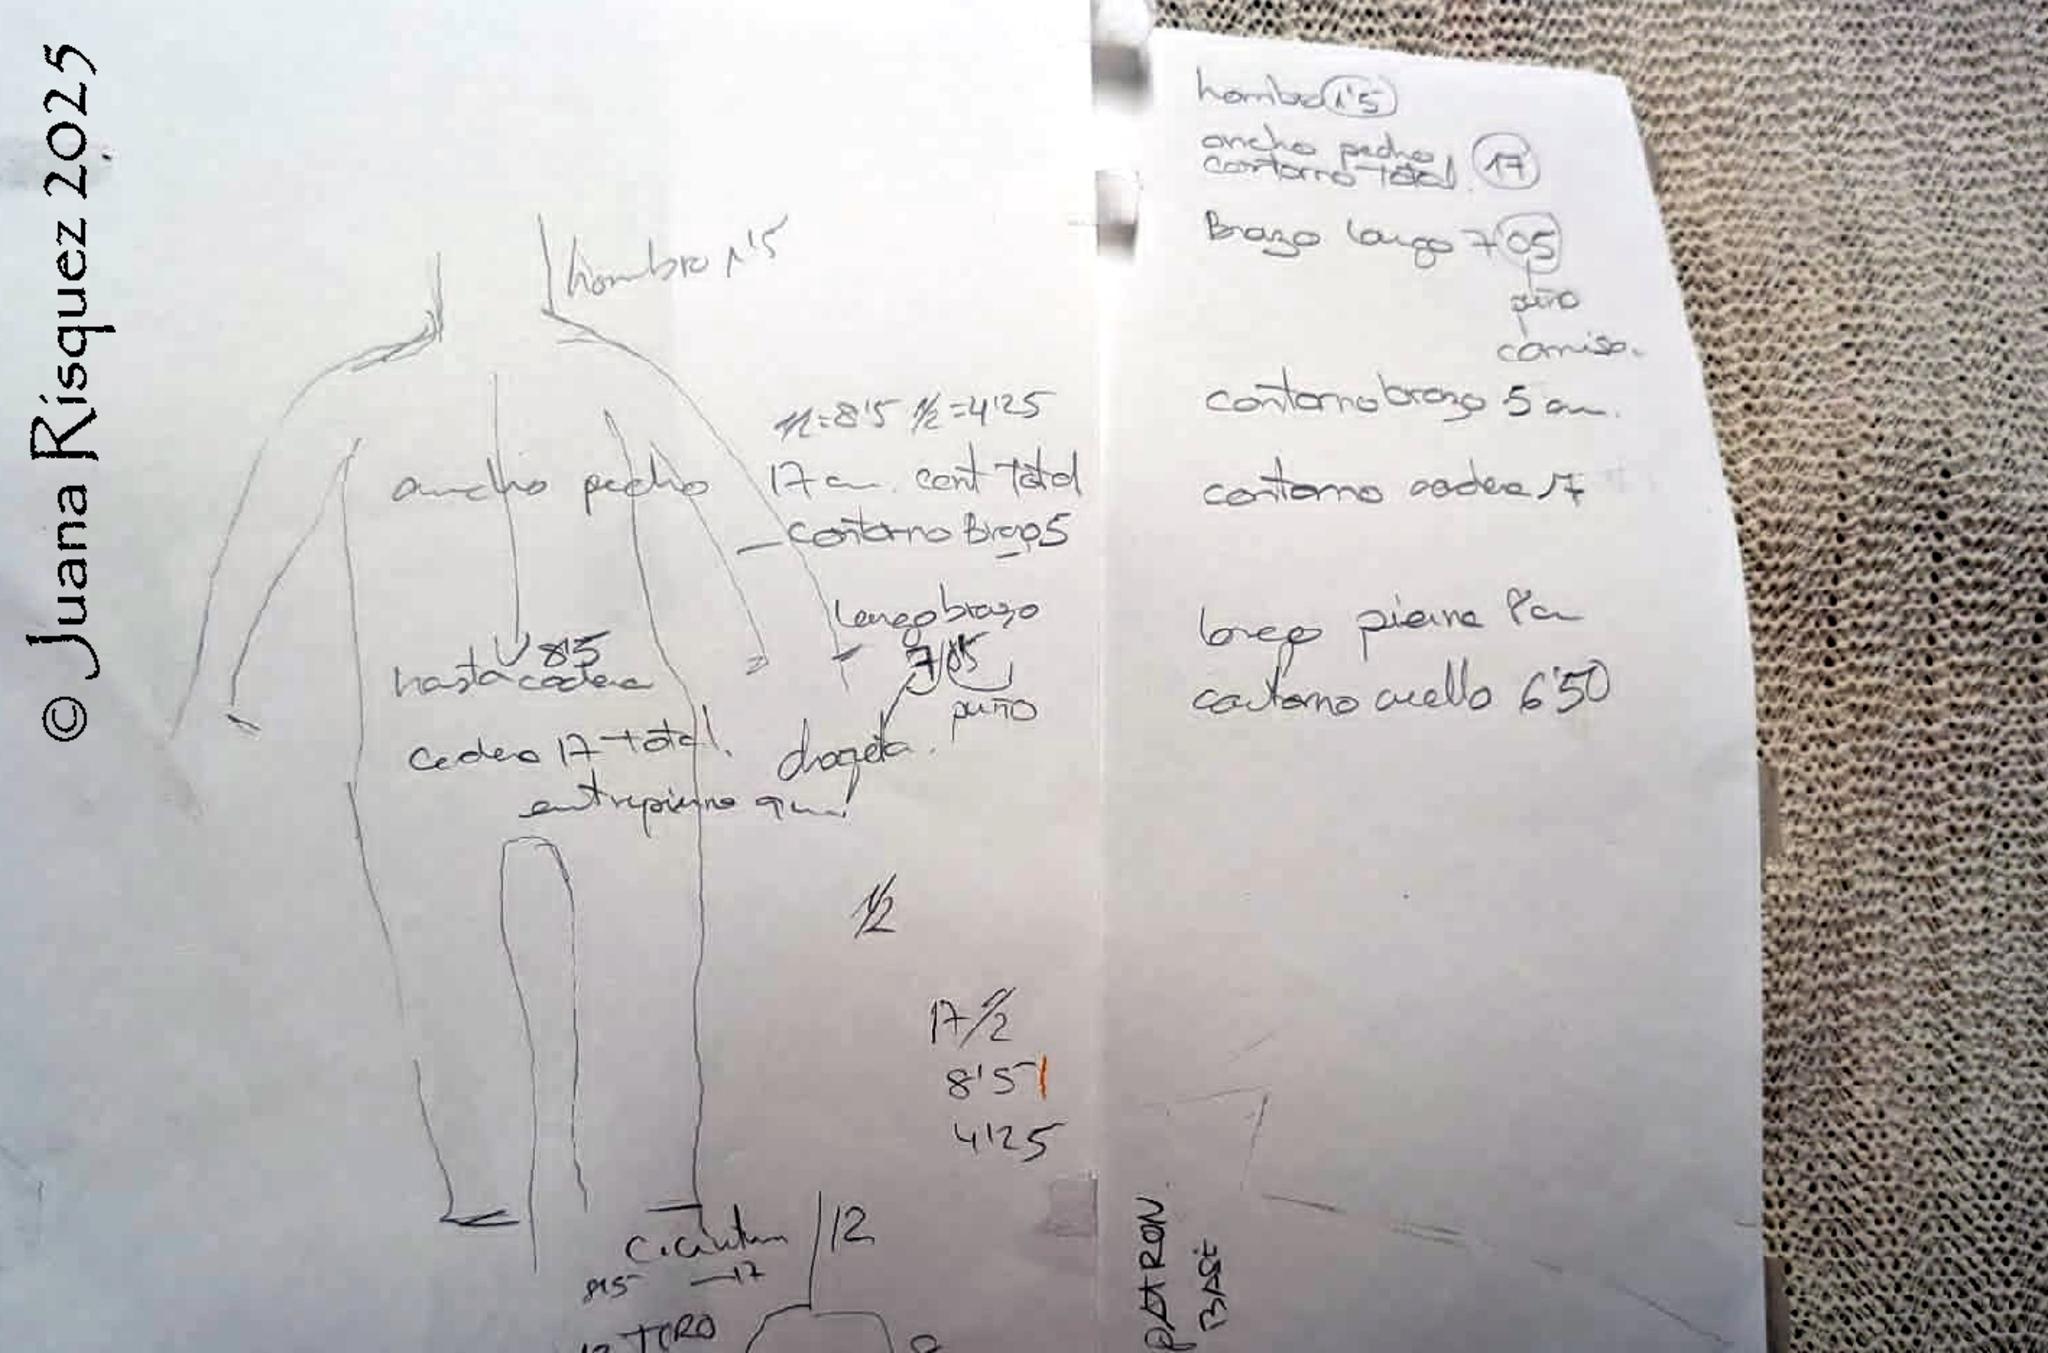 © Juana Rísquez 2025
hombro 1'5
1/2=8'5 1/2=4'25
ancho pecho 17 cm. cont total
contorno Brazo 5
largo brazo
8'5
7/05
hasta cadera
puño
cadera 17 total. chaqueta.
entrepierna 9 cm
1/2
17/2
8'5
4'25
12
8'5 — 17
TIRO
hombro 1'5
ancho pecho 17
contorno total.
Brazo largo 7 05
puño
camisa.
contorno brazo 5 cm.
contorno cadera 17
largo pierna
contorno cuello 6'50
PATRON
BASE